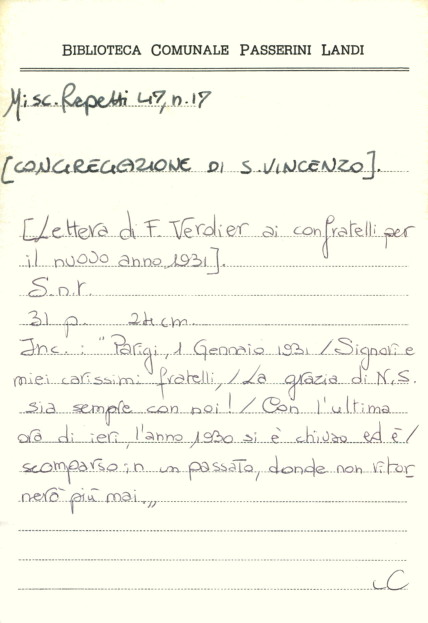 BIBLIOTECA COMUNALE PASSERINI LANDI
Misc. Repetti 47, n.17
[CONGREGAZIONE DI S.VINCENZO].
[Lettera di F. Verdier ai confratelli per
il nuovo anno 1931].
S.n.t.
31 p. 24 cm.
Inc.: "Parigi, 1 Gennaio 1931 / Signori e
miei carissimi fratelli, / La grazia di N.S.
sia sempre con noi! / Con l'ultima
ora di ieri, l'anno 1930 si è chiuso ed è /
scomparso in un passato, donde non ritor
nerò più mai.„